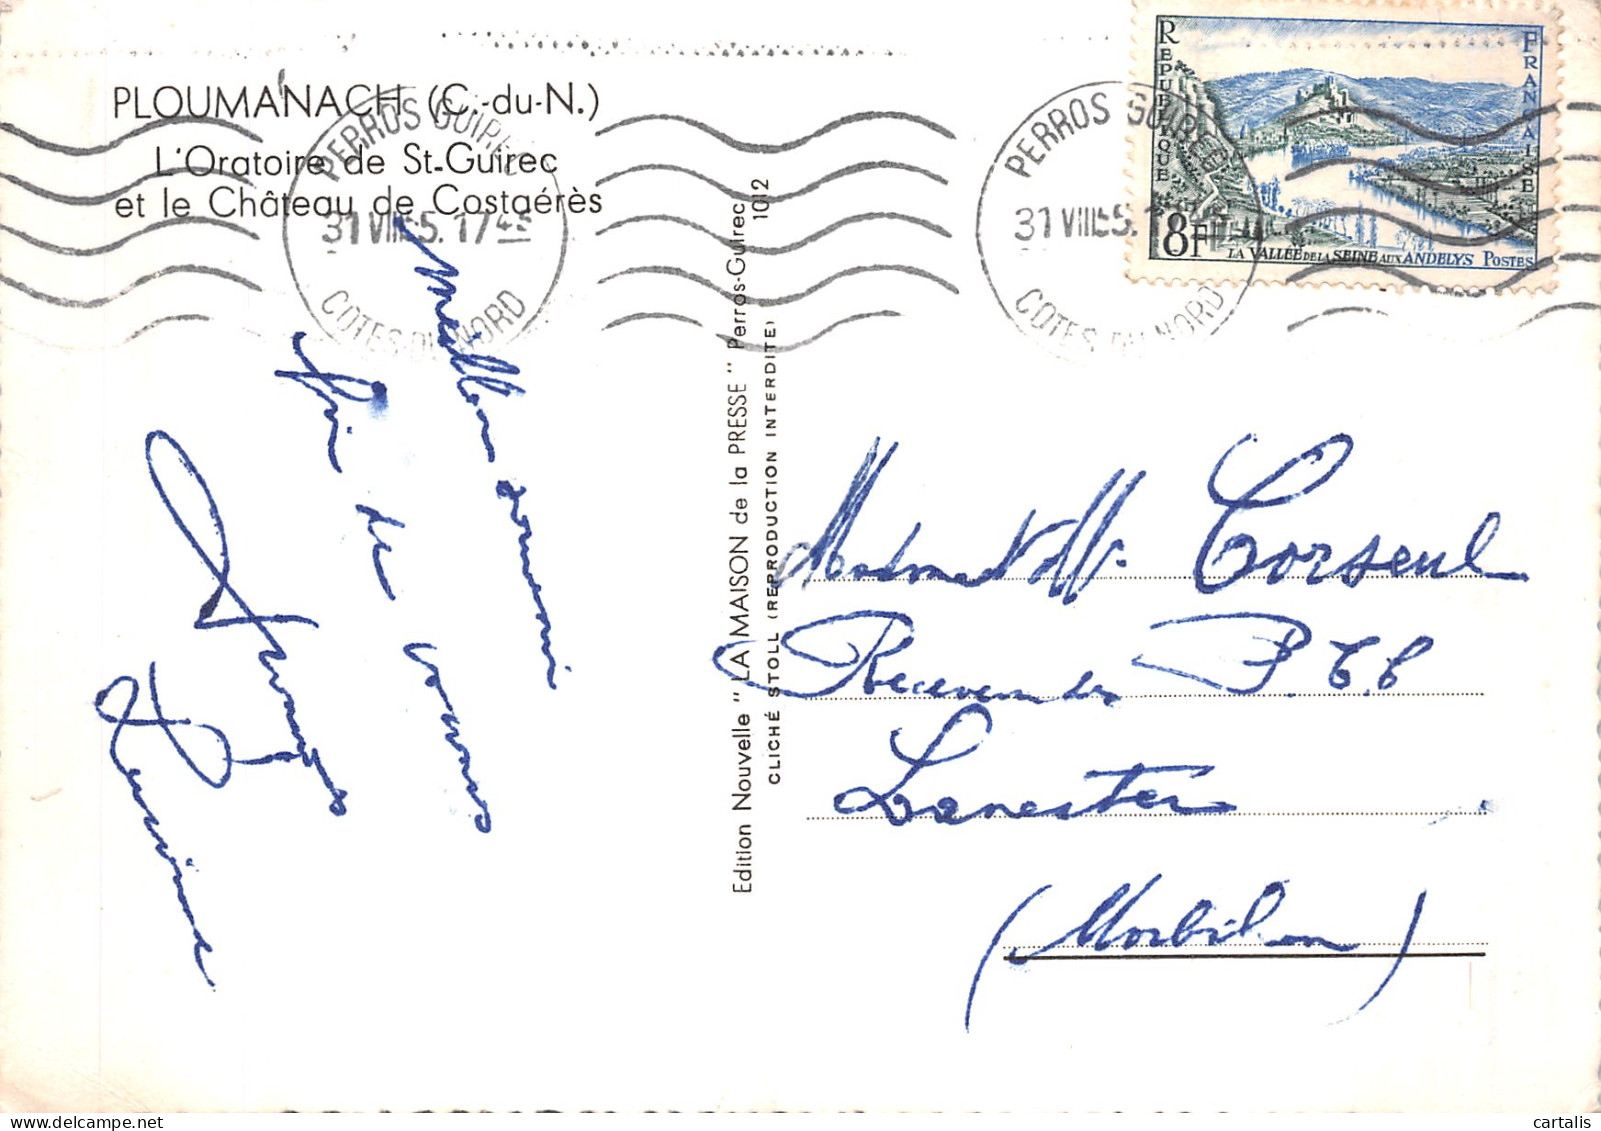 PLOUMANACH (C.-du-N.)
L'Oratoire de St-Guirec
et le Château de Costaérès
PERROS GUIREC
31 VIII 55. 17 45
COTES DU NORD
PERROS GUIREC
31 VIII 55. 17 45
COTES DU NORD
REPUBLIQUE FRANÇAISE
8F
LA VALLÉE DE LA SEINE AUX ANDELYS POSTES
Meilleur souvenir
de
Edition Nouvelle "LA MAISON de la PRESSE" Perros-Guirec 1012
CLICHÉ STOLL (REPRODUCTION INTERDITE)
Corseul
Receveur des P.T.T
Lanester
(Morbihan)
cartalis